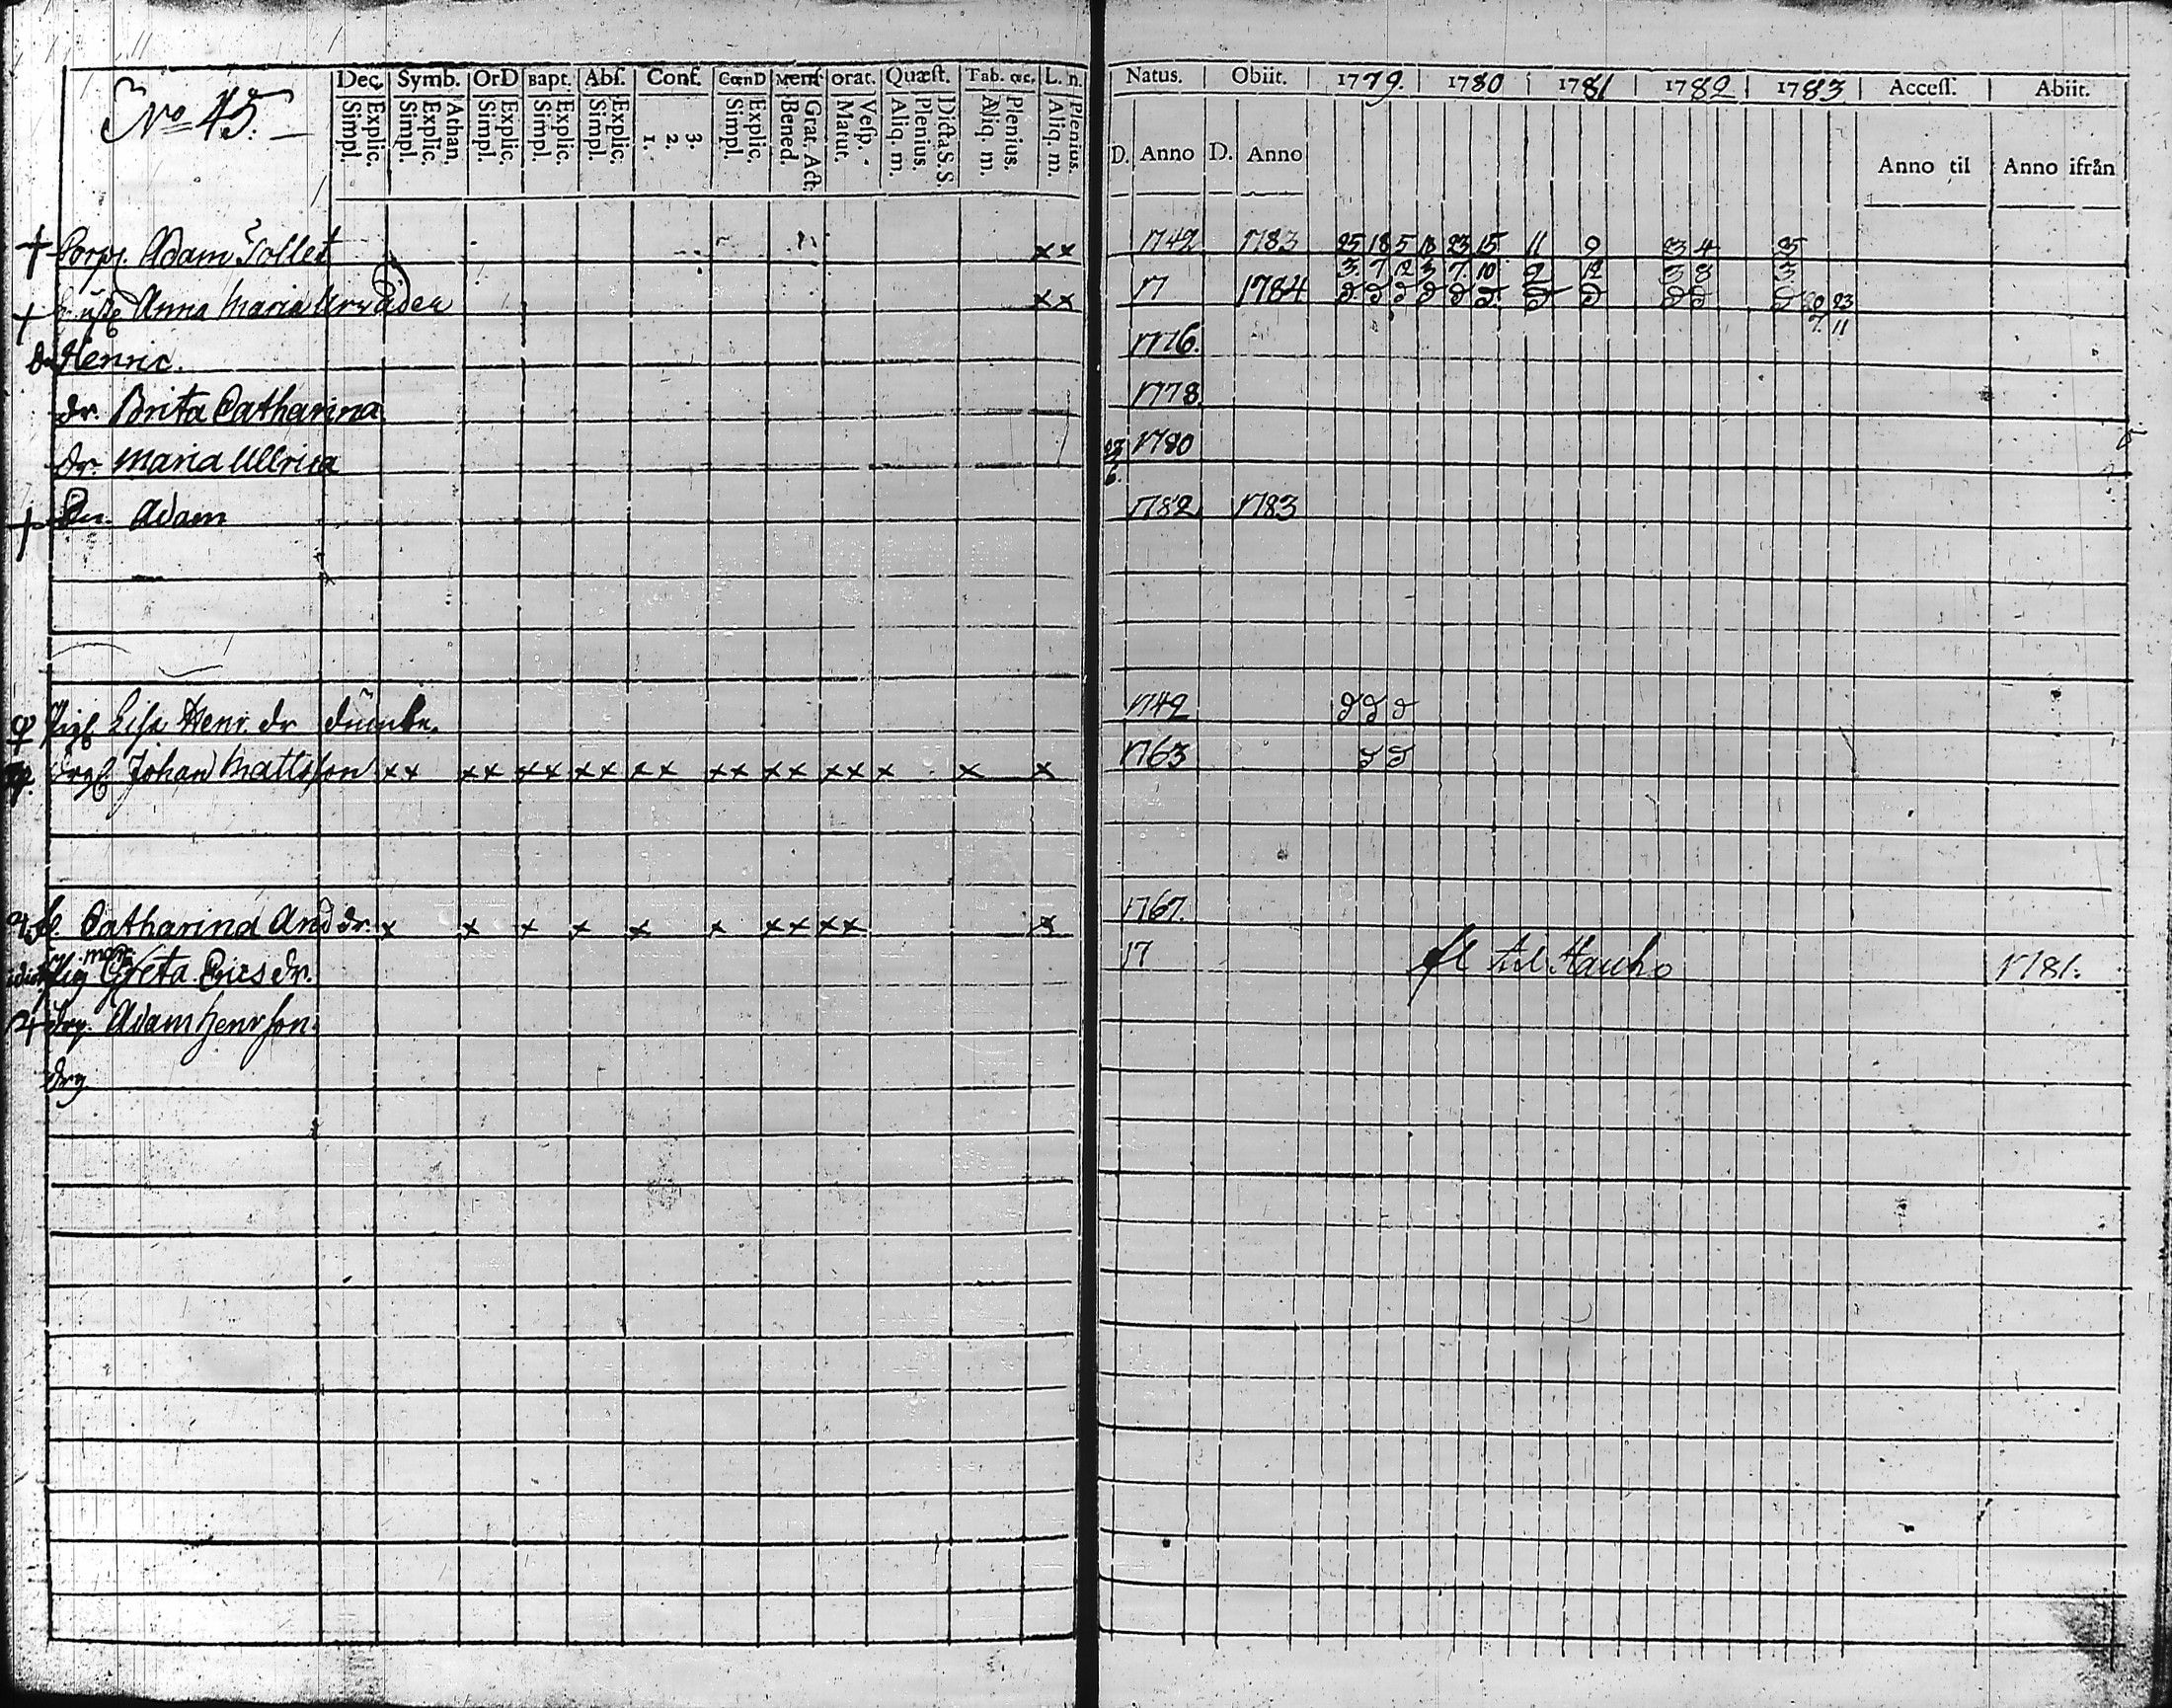 No 45.
Dec. Symb. OrD Bapt. Abs. Conf. CœnD Mens orat. Quæst. Tab. œc. L. n. Natus. Obiit. 1779. 1780 1781 1782 1783 Access. Abiit.
Explic. Simpl. Athan. Explic. Simpl. Explic. Simpl. Explic. Simpl. Explic. Simpl. 3. 2. 1. Explic. Simpl. Grat. Act. Bened. Vesp. Matut. Dicta S. S. Plenius. Aliq. m. Plenius. Aliq. m. Plenius. Aliq. m.
D. Anno D. Anno Anno til Anno ifrån
† Corp. Adam Sollet x x 1742 1783 25 18 5 18 23 15 11 9 23 4 25
3 7 12 3 7 10 2 12 3 8 3
† Anna Maria x x 17 1784 20 23
7 11
Henric. 1776.
dr. Brita Catharina 1778
dr. Maria Ullrica 23 6. 1780
† Adam 1782 1783
Pig. Lisa Henr. dr 1742
Johan Mattsson x x x x x x x x x x x x x x x x x x x 1763
Catharina And dr. x x x x x x x x x x x 1767.
Greta Erics dr. 17 fl til Hauho 1781.
drg. Adam Henrson.
drg